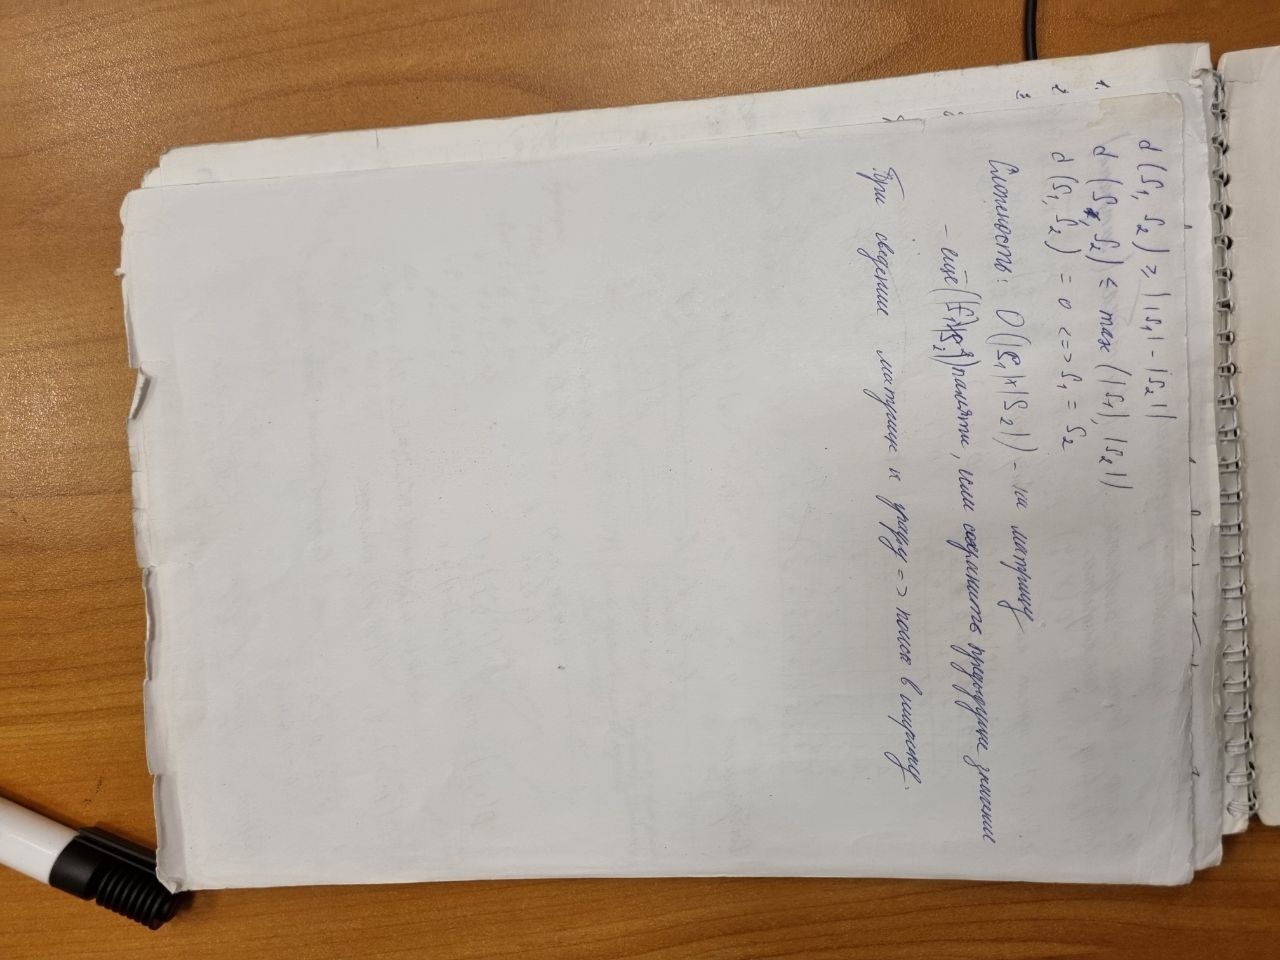 d (S₁, S₂) ≥ ||S₁| - |S₂||
1. d (S₁, S₂) ≤ max (|S₁|, |S₂|)
2 d (S₁, S₂) = 0 <=> S₁ = S₂
3
Сложность: O(|S₁|*|S₂|) - на матрицу
- ещё памяти, если сохранить предыдущие значение
При сведение матриц к графу => поиск в ширину.